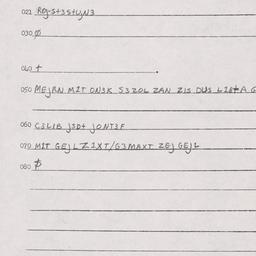 021 Rg-S+3S+UN3
030 Ø
040 +
050 MEJRN MIT ON3K S3ZOL ZAN ZIS DUS
060 C3LIB J3D+ JONT3F
070 MIT GEJL ZIXT/G3MAXT ZEJ GEJL
080